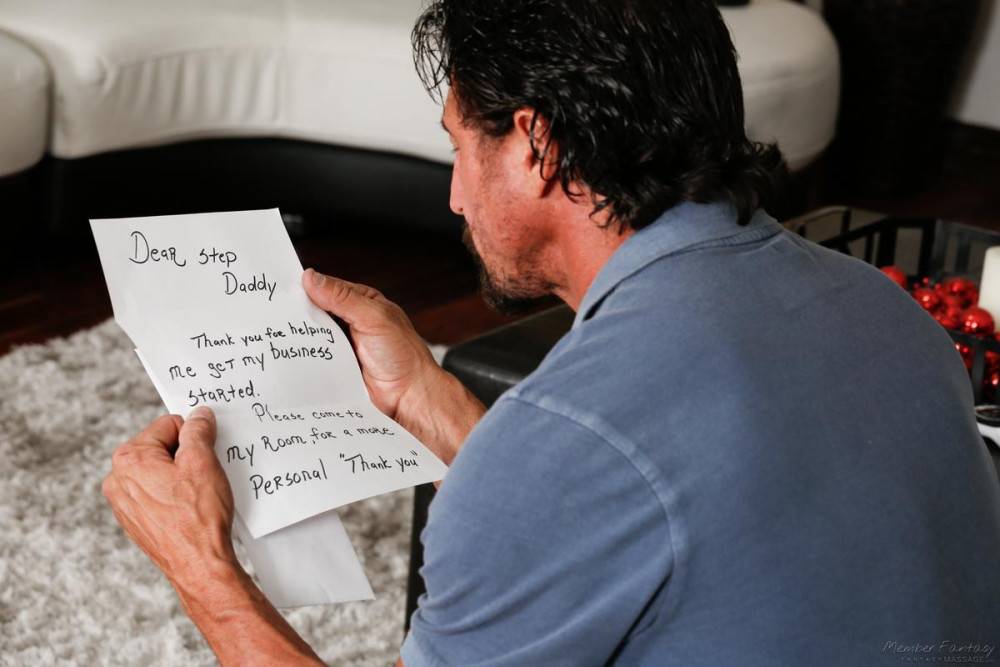 Dear Step
Daddy
Thank you for helping
me get my business
started.
Please come to
my Room, for a more
Personal "Thank you"
Member Fantasy
FANTASYMASSAGE